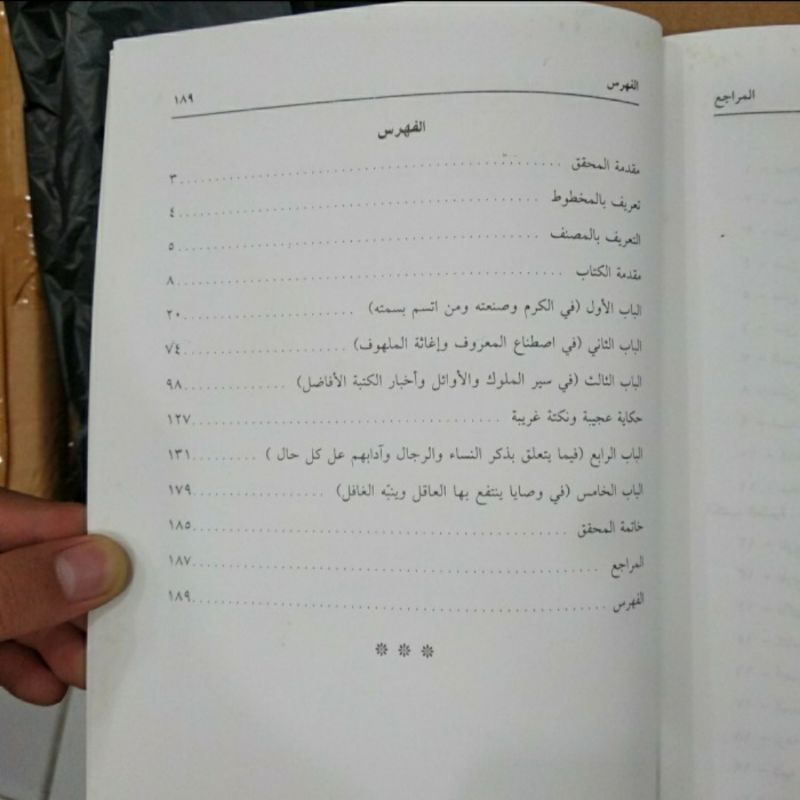 الفهرس ١٨٩
الفهرس
مقدمة المحقق ................ ٣
تعريف بالمخطوط ................ ٤
التعريف بالمصنف ................ ٥
مقدمة الكتاب ................ ٨
الباب الأول (في الكرم وصنعته ومن اتسم بسمته) ................ ٢٠
الباب الثاني (في اصطناع المعروف وإغاثة الملهوف) ................ ٧٤
الباب الثالث (في سير الملوك والأوائل وأخبار الكتبة الأفاضل) ................ ٩٨
حكاية عجيبة ونكتة غريبة ................ ١٢٧
الباب الرابع (فيما يتعلق بذكر النساء والرجال وآدابهم عل كل حال ) ................ ١٣١
الباب الخامس (في وصايا ينتفع بها العاقل وينبّه الغافل) ................ ١٧٩
خاتمة المحقق ................ ١٨٥
المراجع ................ ١٨٧
الفهرس ................ ١٨٩
المراجع